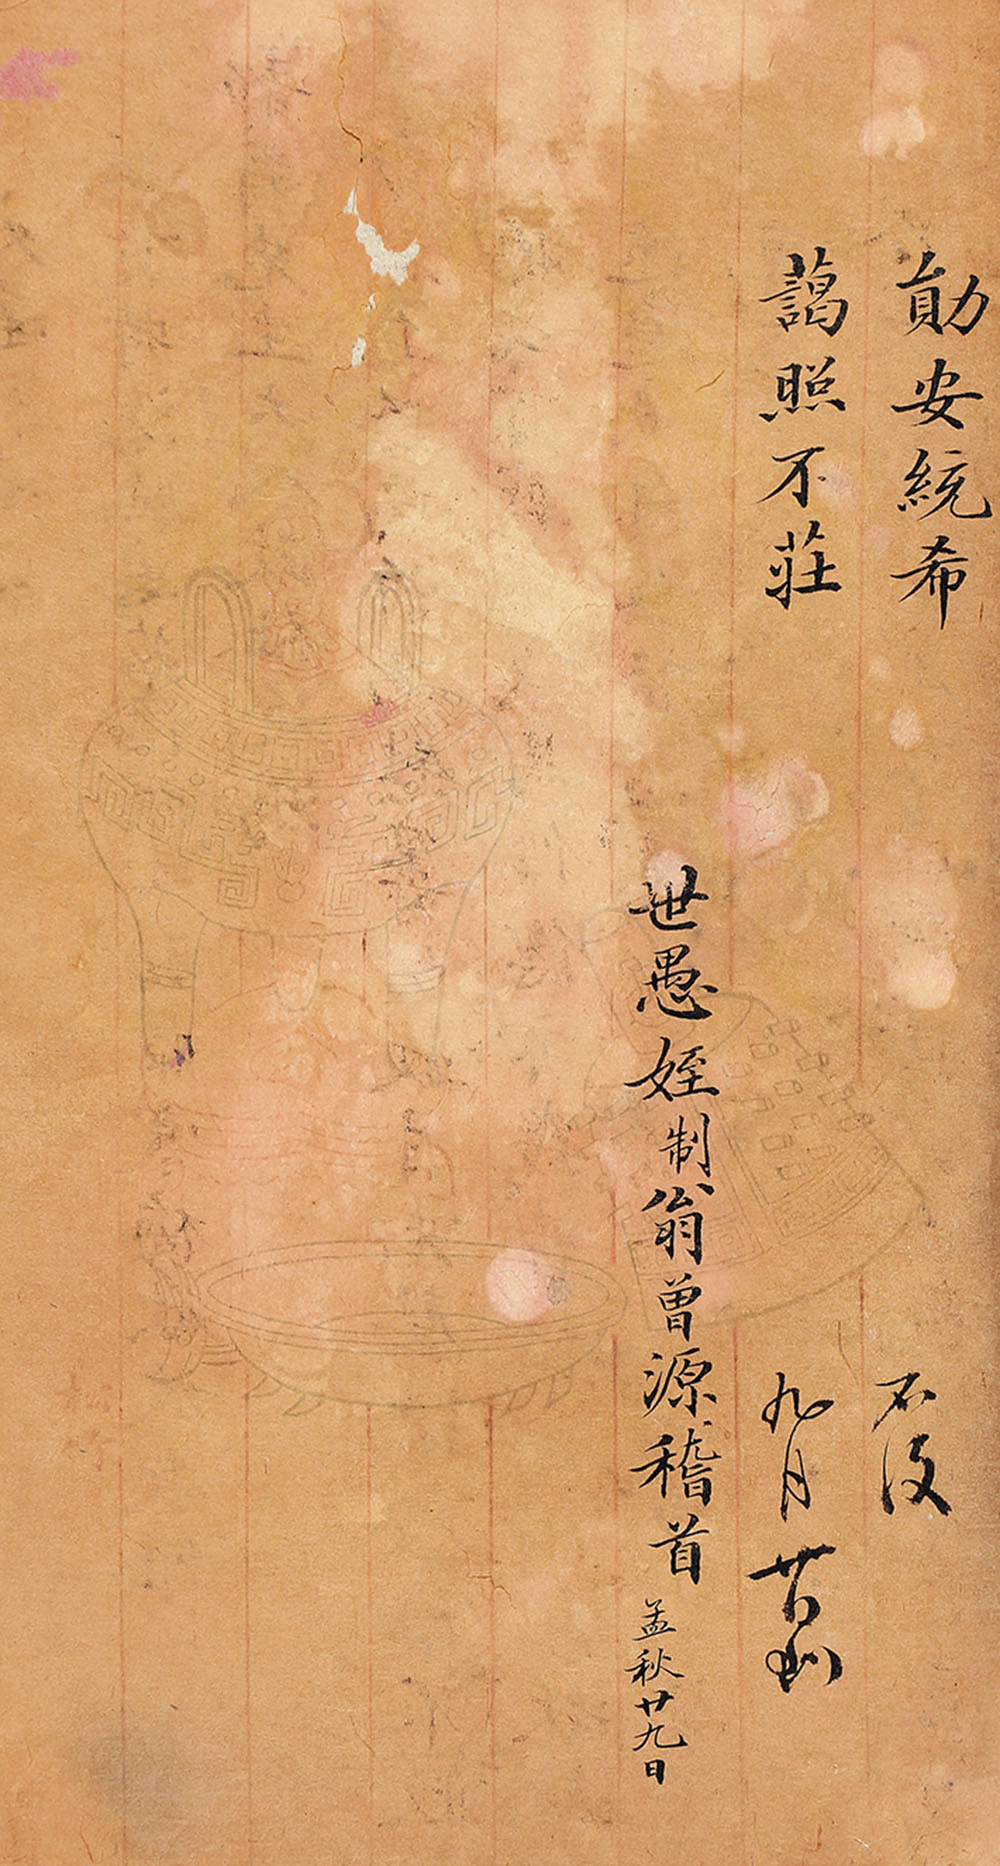 勛安統希
藹照不莊
世愚姪制翁曾源稽首
孟秋廿九日
九月